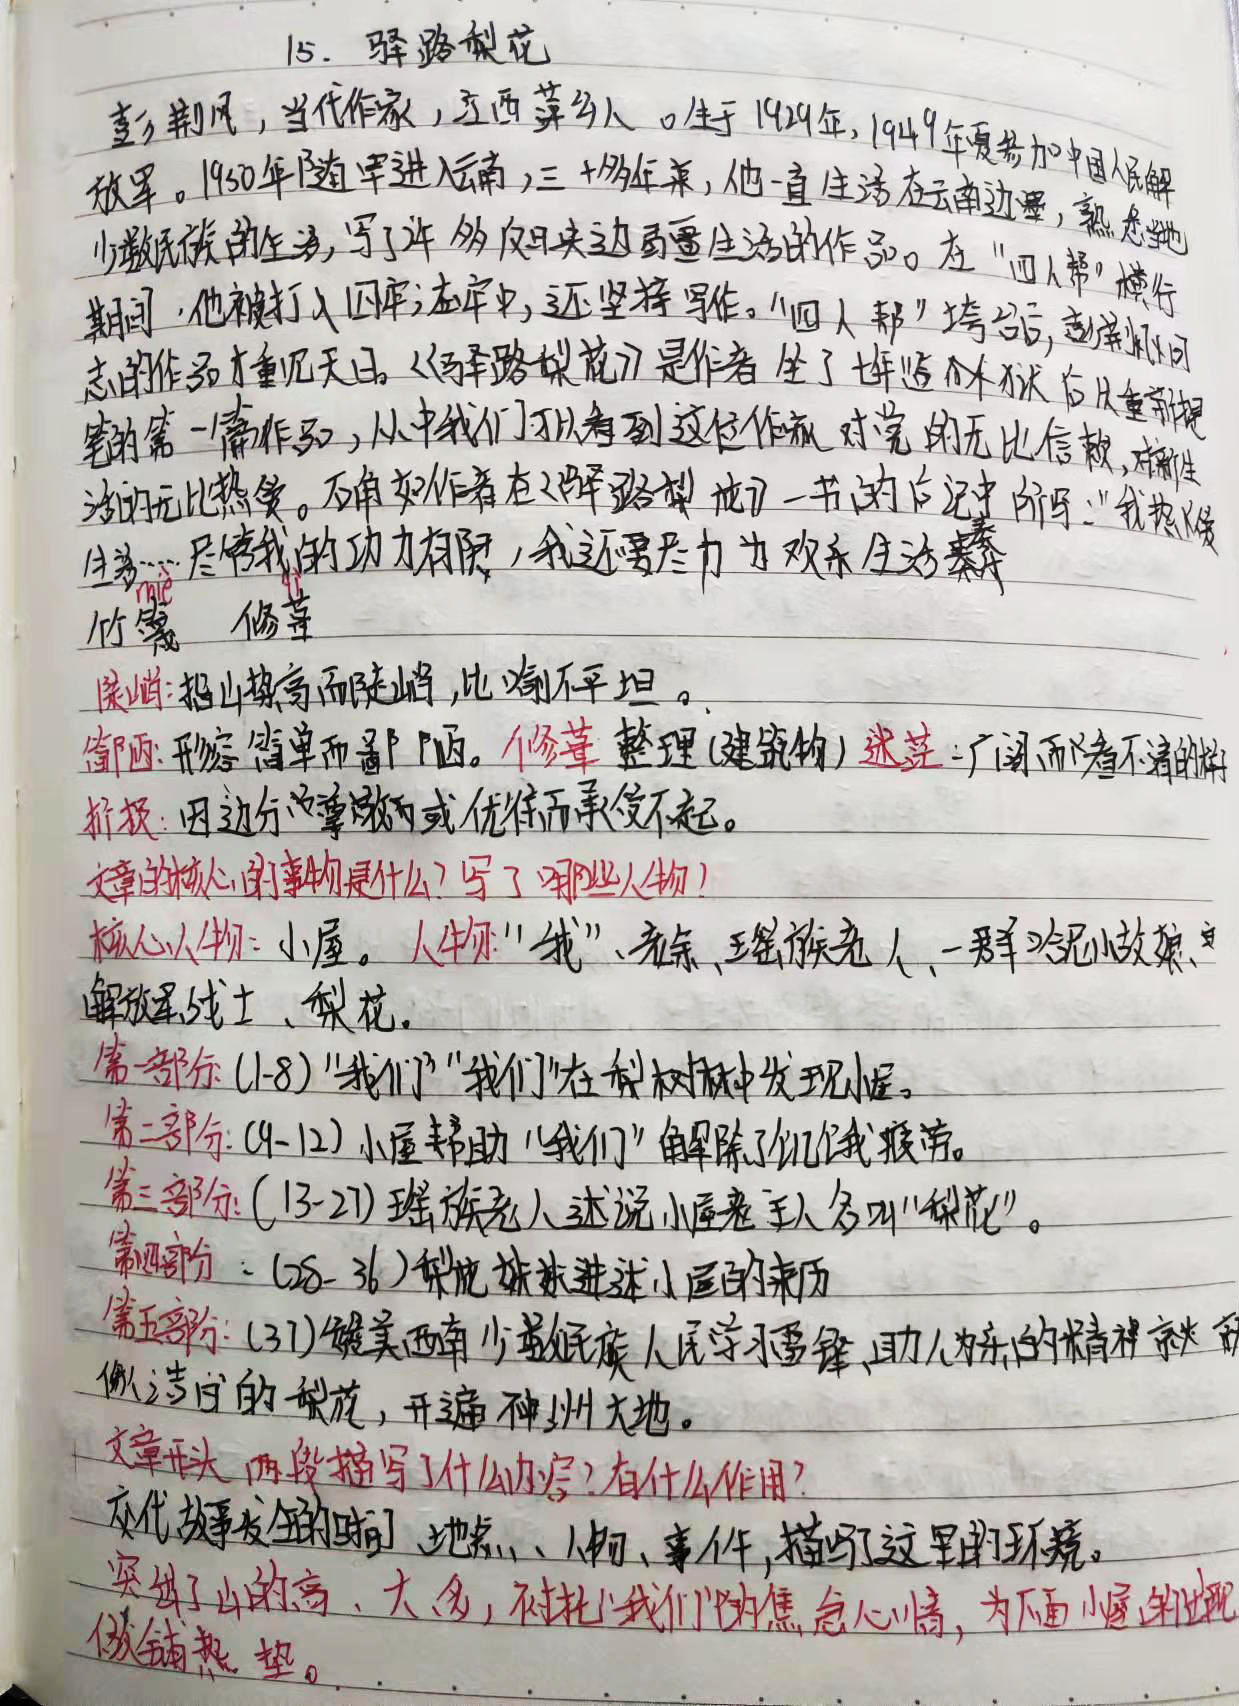 15. 驿路梨花
彭荆风，当代作家，江西萍乡人。生于1929年，1949年夏参加中国人民解
放军。1950年随军进入云南，三十多年来，他一直生活在云南边疆，熟悉当地
少数民族的生活，写了许多反映边疆生活的作品。在"四人帮"横行
期间，他被打入囚牢；在牢中，还坚持写作。"四人帮"垮台后，彭荆风同
志的作品才重见天日。《驿路梨花》是作者坐了七年监狱后从重新提
笔的第一篇作品，从中我们可以看到这位作家对党的无比信赖，对新生
活的无比热爱。正如作者在《驿路梨花》一书的后记中所写："我热爱
生活……尽管我的功力有限，我还要尽力为欢乐生活奏
miè qì
竹篾 修葺
陡峭：指山势高而陡峭，比喻不平坦。
简陋：形容简单而鄙陋。修葺 整理（建筑物）迷茫：广阔而看不清的样
折损：因过分的尊敬或优待而承受不起。
文章的核心的事物是什么？写了哪些人物？
核心人物：小屋。人物："我"、老余、瑶族老人、一群哈尼小姑娘、
解放军战士、梨花。
第一部分：(1-8)"我们""我们"在梨树林中发现小屋。
第二部分：(9-12)小屋帮助"我们"解除了饥饿疲劳。
第三部分：(13-27)瑶族老人述说小屋主人名叫"梨花"。
第四部分：(28-36)梨花妹妹讲述小屋的来历
第五部分：(37)赞美西南少数民族人民学习雷锋、助人为乐的精神就
像洁白的梨花，开遍神州大地。
文章开头两段描写了什么内容？有什么作用？
交代故事发生的时间、地点、人物、事件，描写了这里的环境。
突出了山的高、大、多，衬托"我们"的焦急心情，为下面小屋的出现
做铺垫。